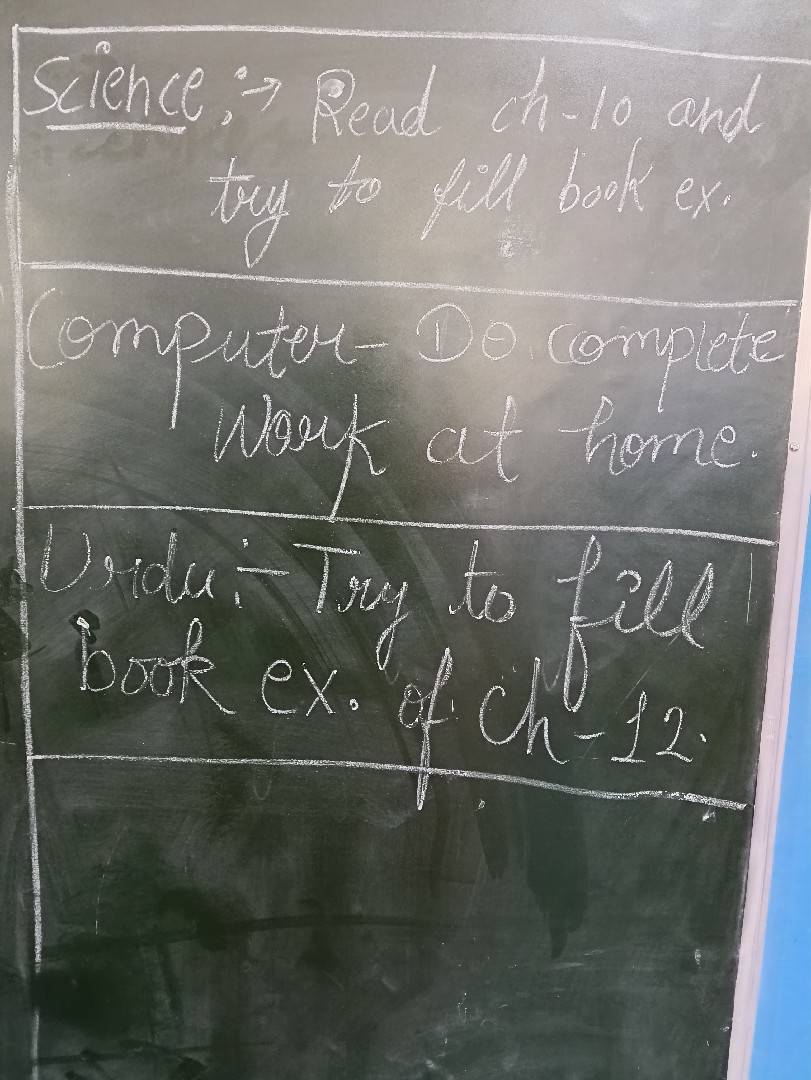 Science :→ Read ch-10 and
try to fill book ex.
Computer- Do complete
Work at home.
Urdu :- Try to fill
book ex. of ch-12.